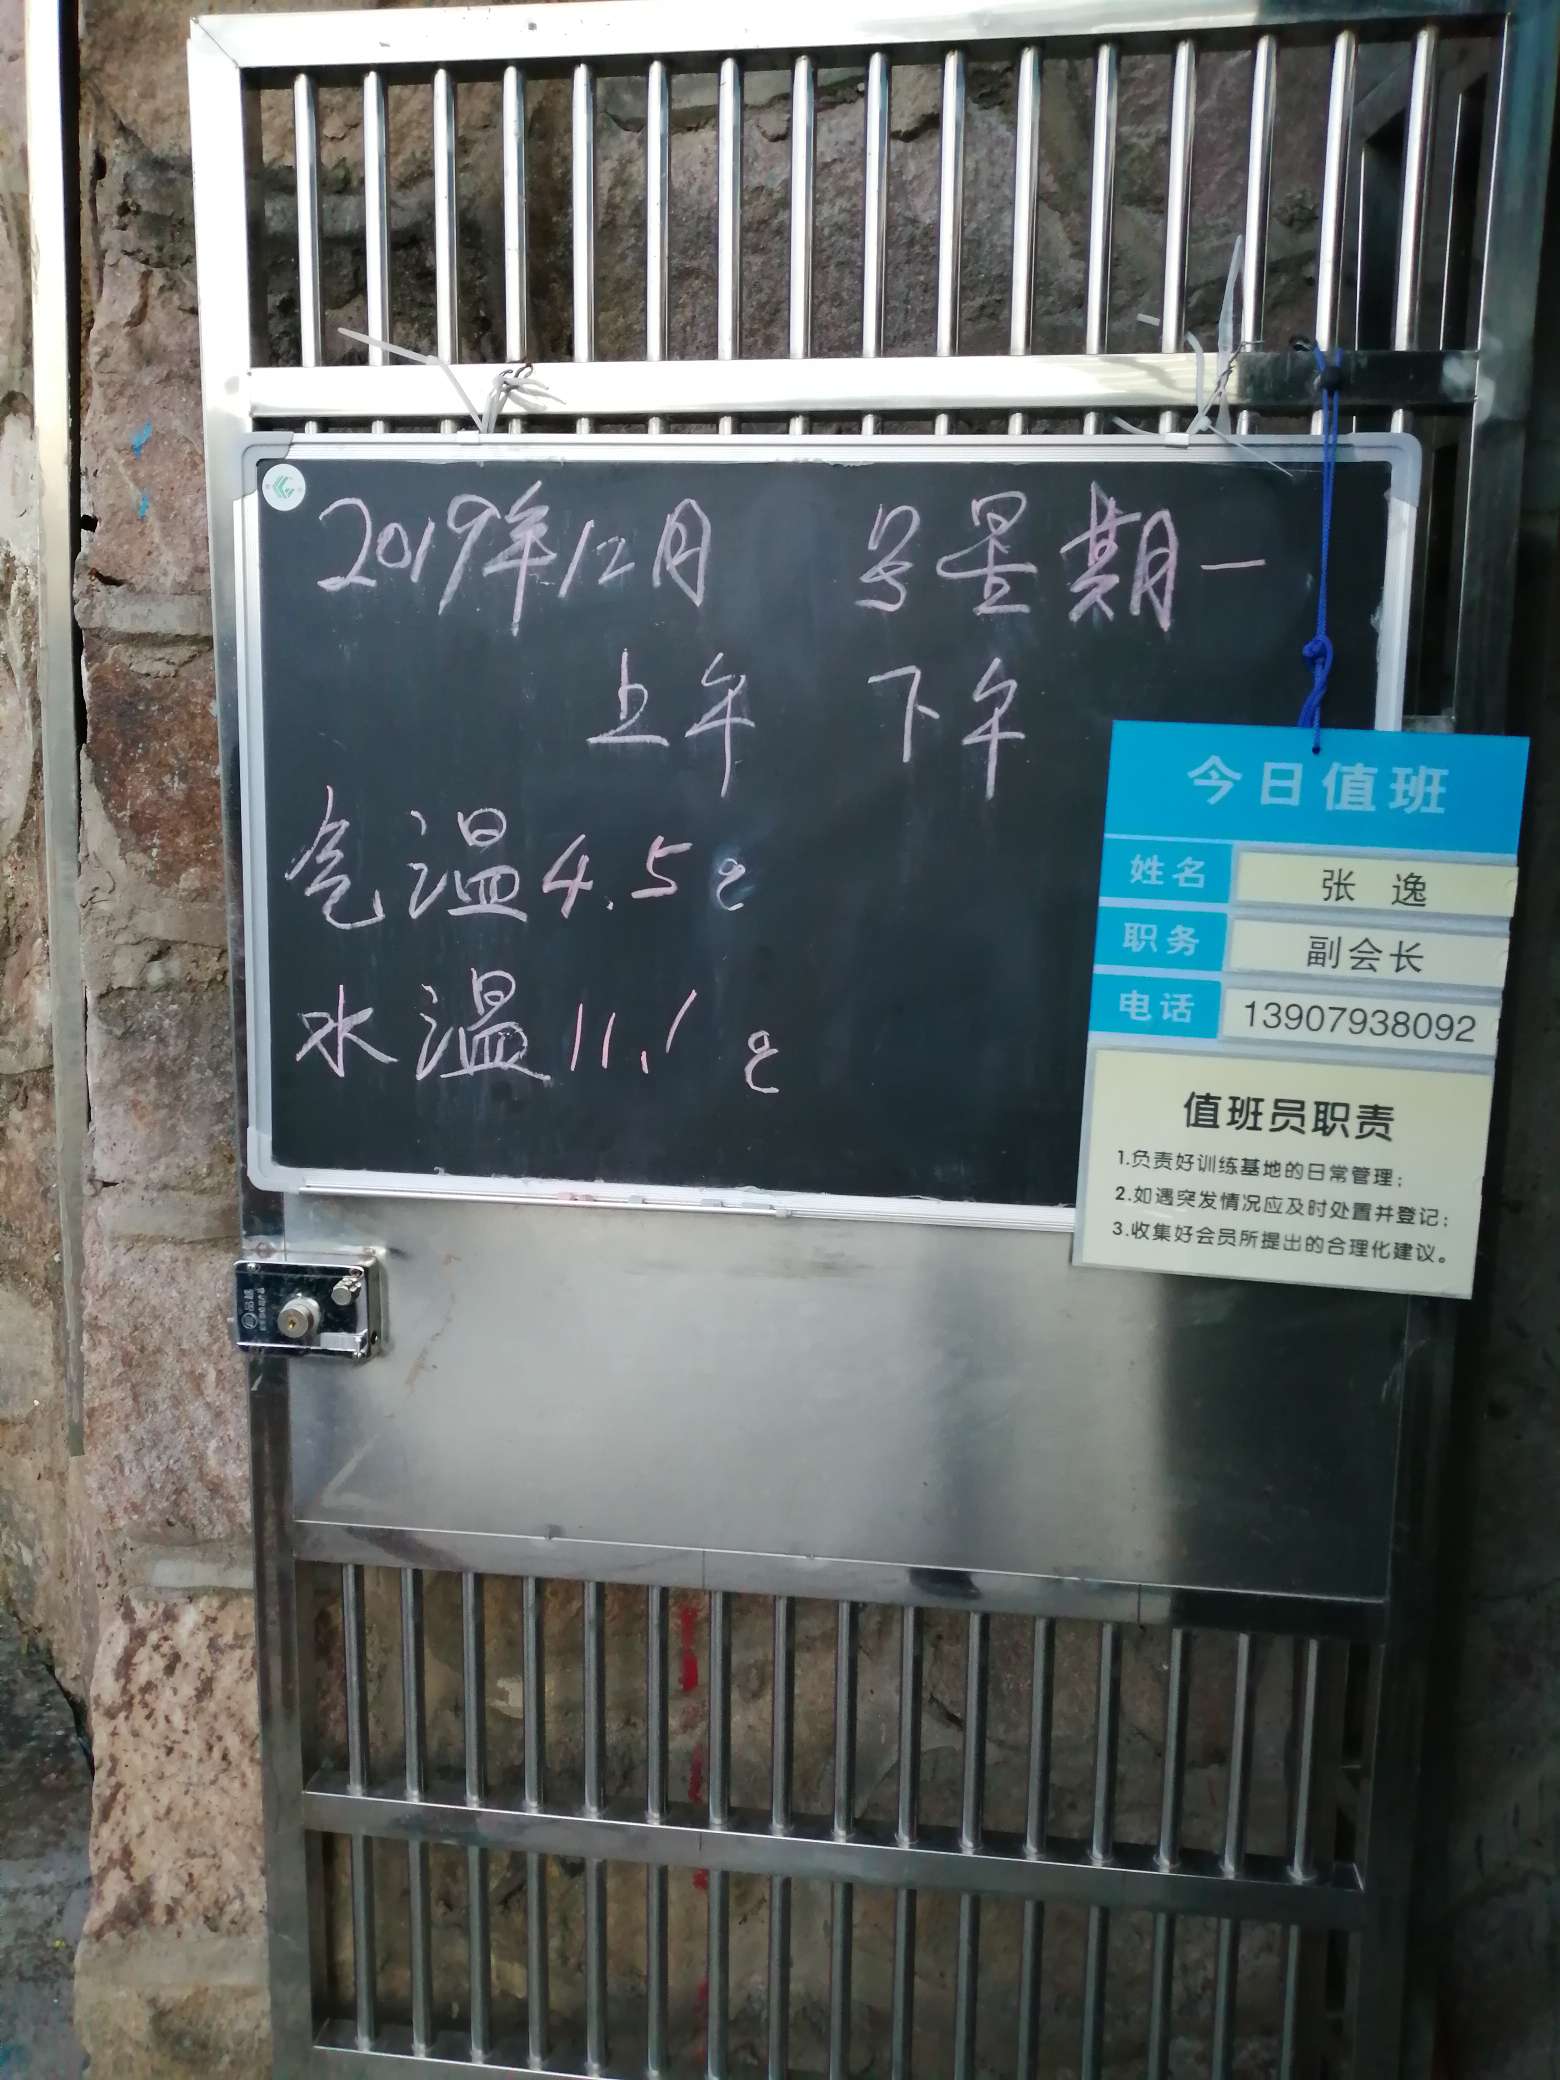 2019年12月 号星期一
上午 下午
气温4.5℃
水温11.1℃
今日值班
姓名 张逸
职务 副会长
电话 13907938092
值班员职责
1.负责好训练基地的日常管理；
2.如遇突发情况应及时处置并登记；
3.收集好会员所提出的合理化建议。